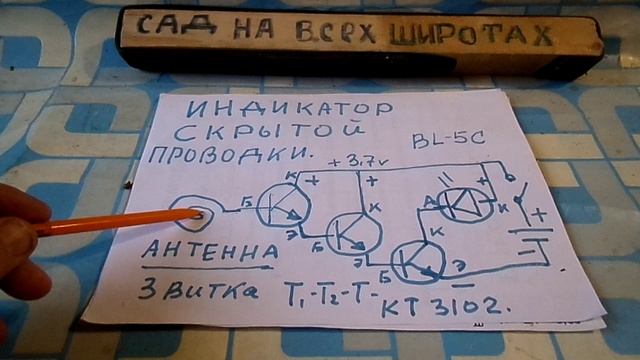 САД НА ВСЕХ ШИРОТАХ
ИНДИКАТОР
СКРЫТОЙ
ПРОВОДКИ.
BL-5C
+3.7v
К + + К
Б Э Б Э Б
К А + К Э
+ − −
АНТЕННА
3 ВИТКА
T₁-T₂-T-
КТ 3102.